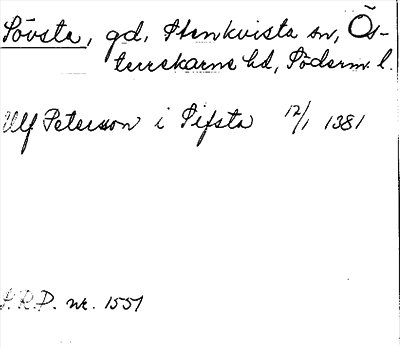 Sövsta, gd, Stenkvista sn, Ös-
terrekarne hd, Söderm. l.
Ulf Peterson i Sifsta 12/1 1381
S.R.P. nr. 1551